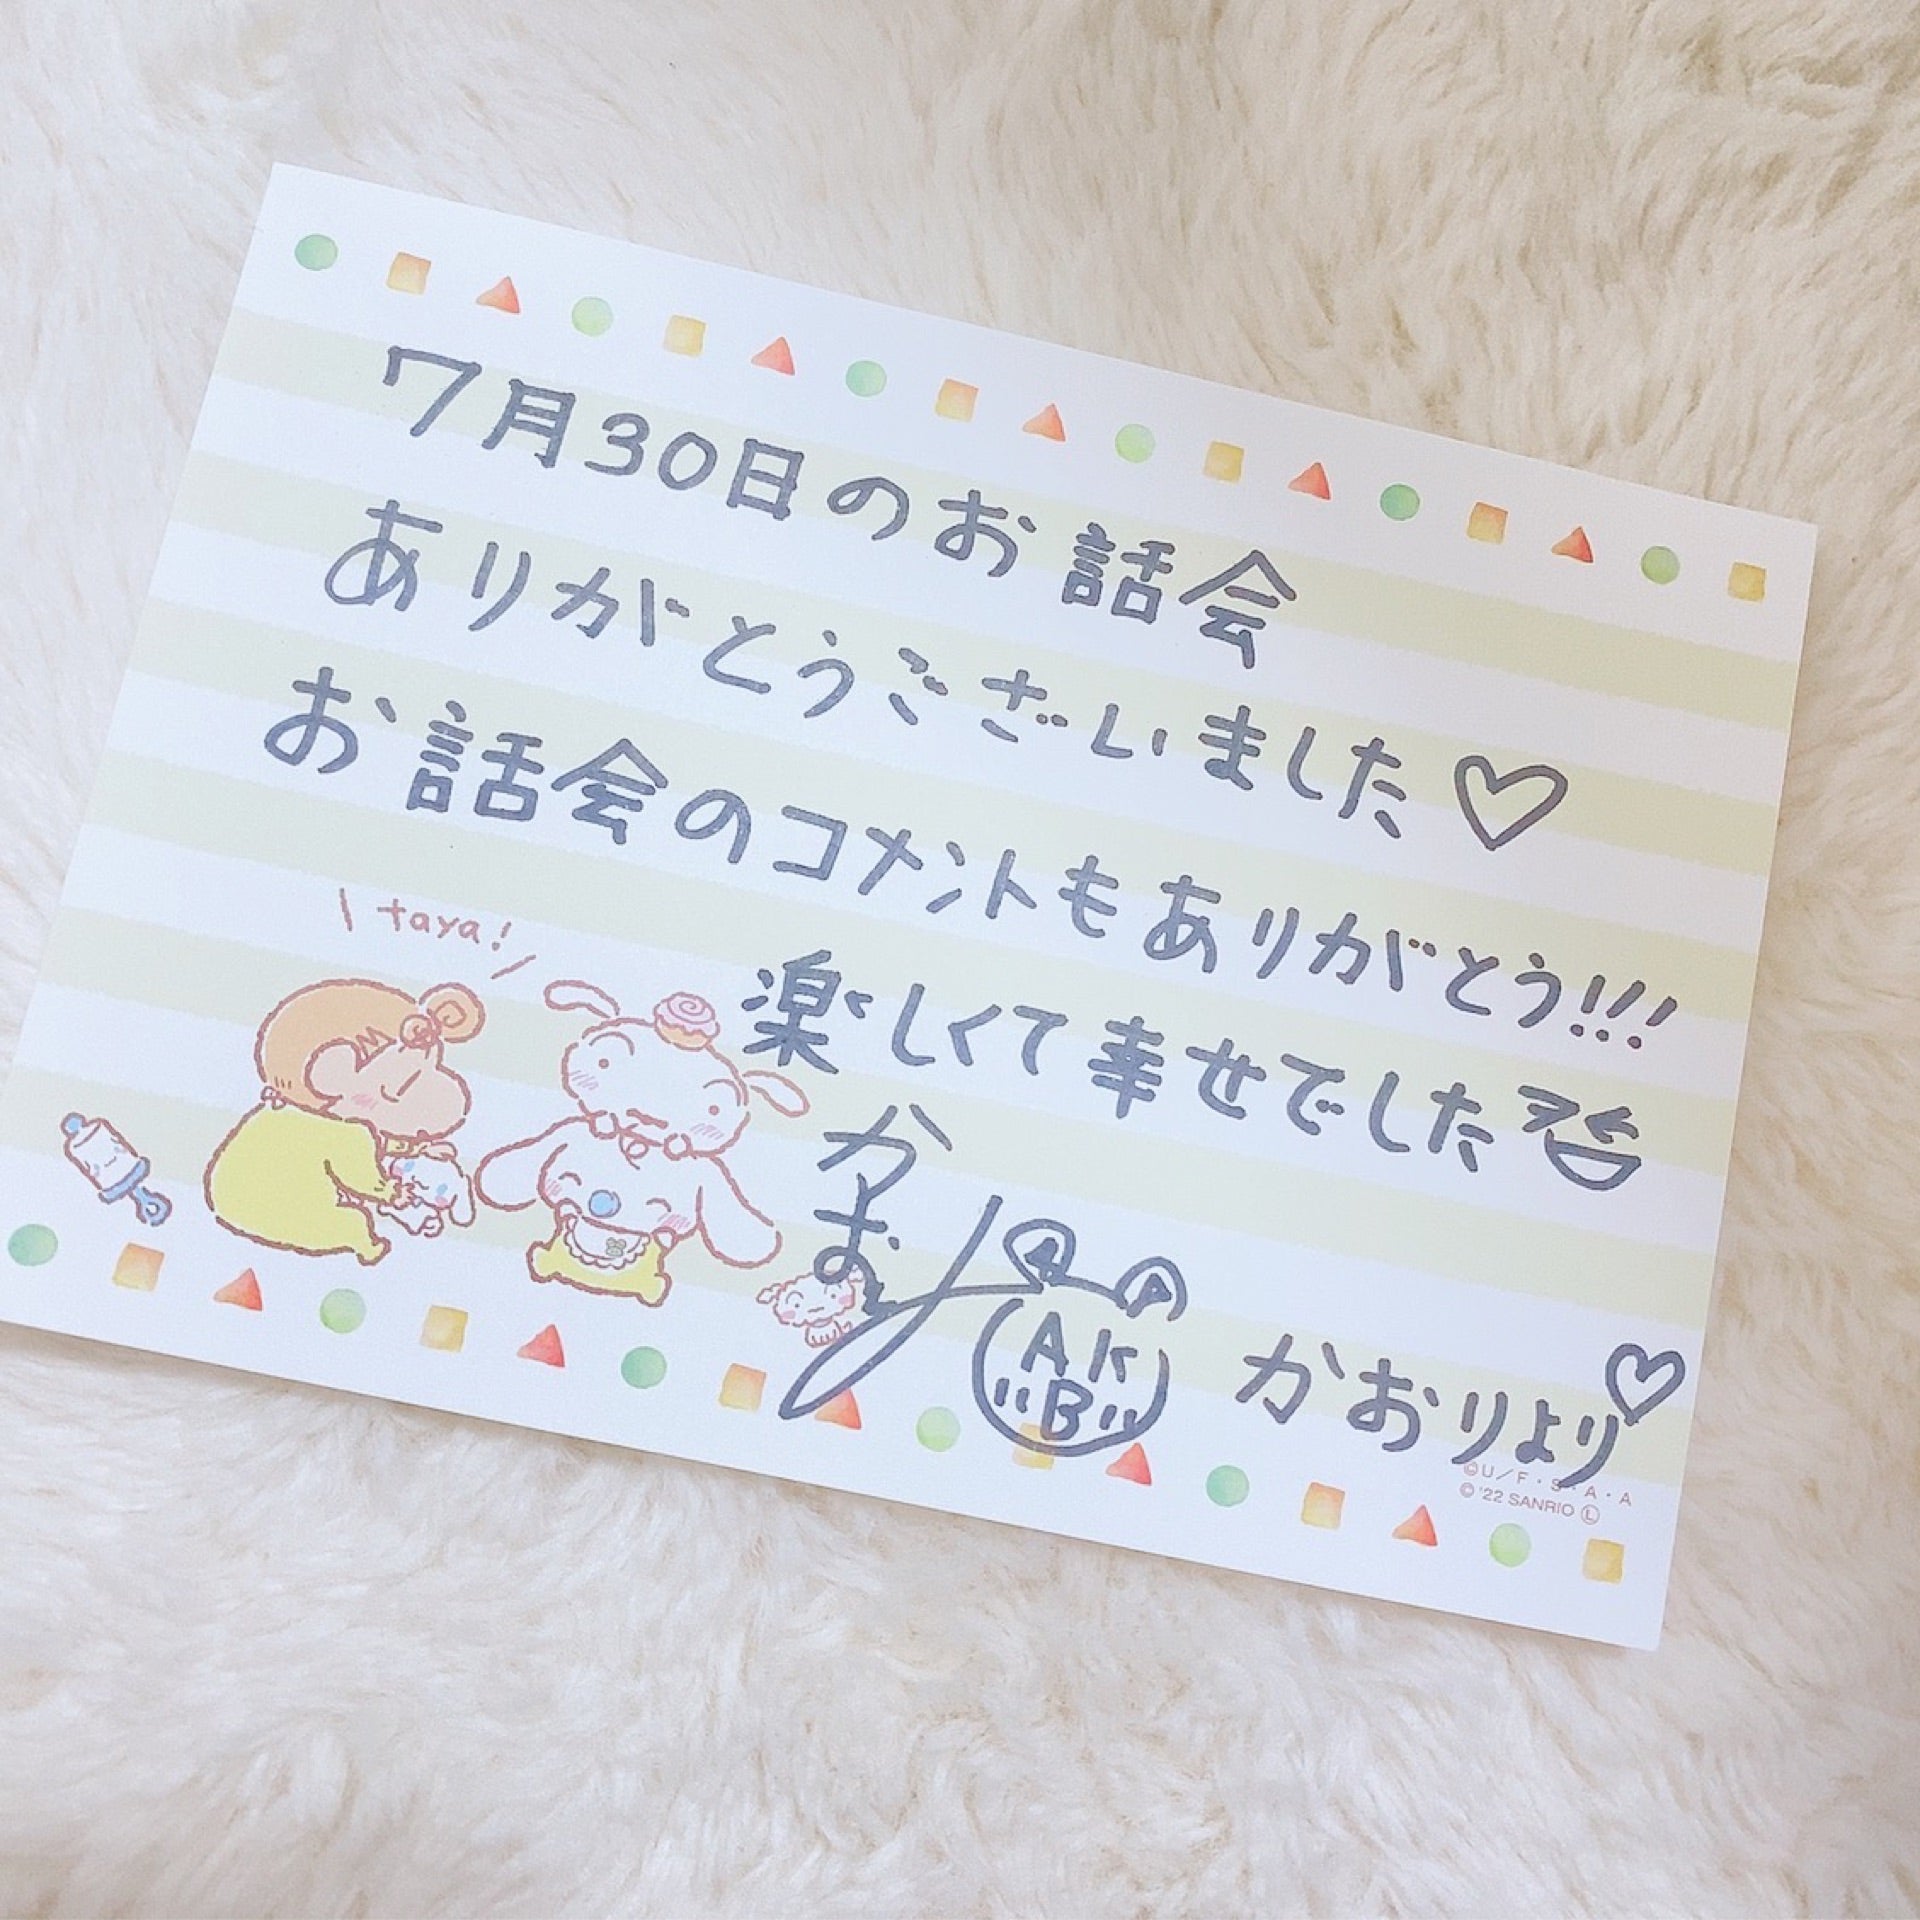 7月30日のお話会
ありがとうございました♡
お話会のコメントもありがとう!!!
\ taya! /
楽しくて幸せでした
かおり
AK
B
かおりより♡
©U/F・S・A・A
©'22 SANRIO Ⓛ